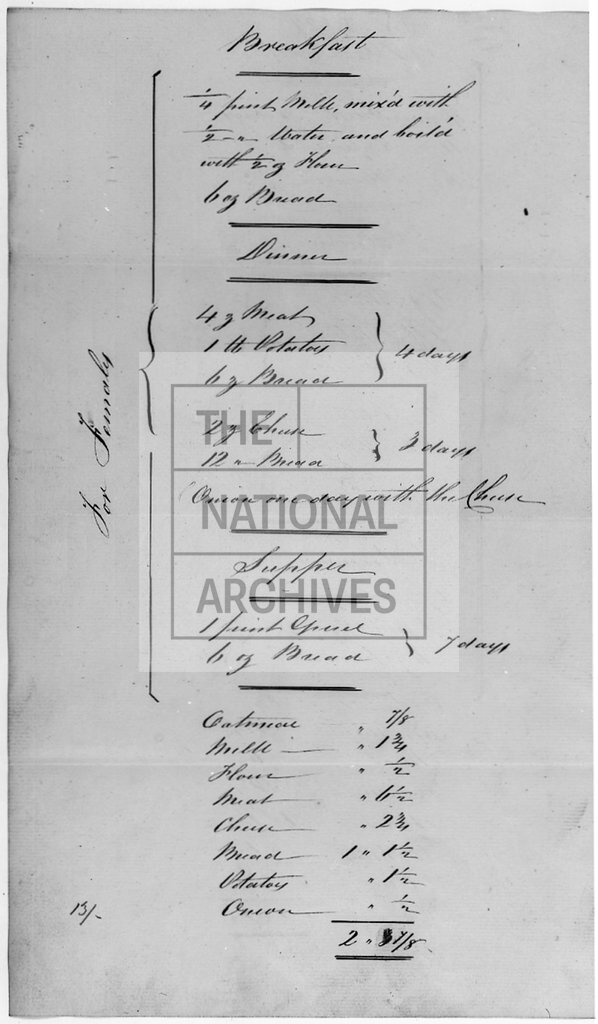 Breakfast
1/4 pint Milk, mix'd with
1/2 " Water and boil'd
with 1/2 oz Flour
6 oz Bread
Dinner
4 oz Meat
1 lb Potatoes
6 oz Bread
} 4 days
2 oz Cheese
12 " Bread
} 3 days
Onion one day with the Cheese
Supper
1 pint Gruel
6 oz Bread
} 7 days
For Females
Oatmeal " 7/8
Milk " 1 3/4
Flour " 1/2
Meat " 6 1/2
Cheese " 2 3/4
Bread 1 " 1 1/2
Potatoes " 1 1/2
Onion " 1/2
2 " 3 7/8
13/-
THE
NATIONAL
ARCHIVES